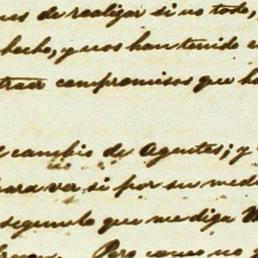 de realizar si no todo,
hecho, y nos han tenido
compromisos que
cambio de Agentes; y
para ver si por su medi
segundo que me diga
Pero como no